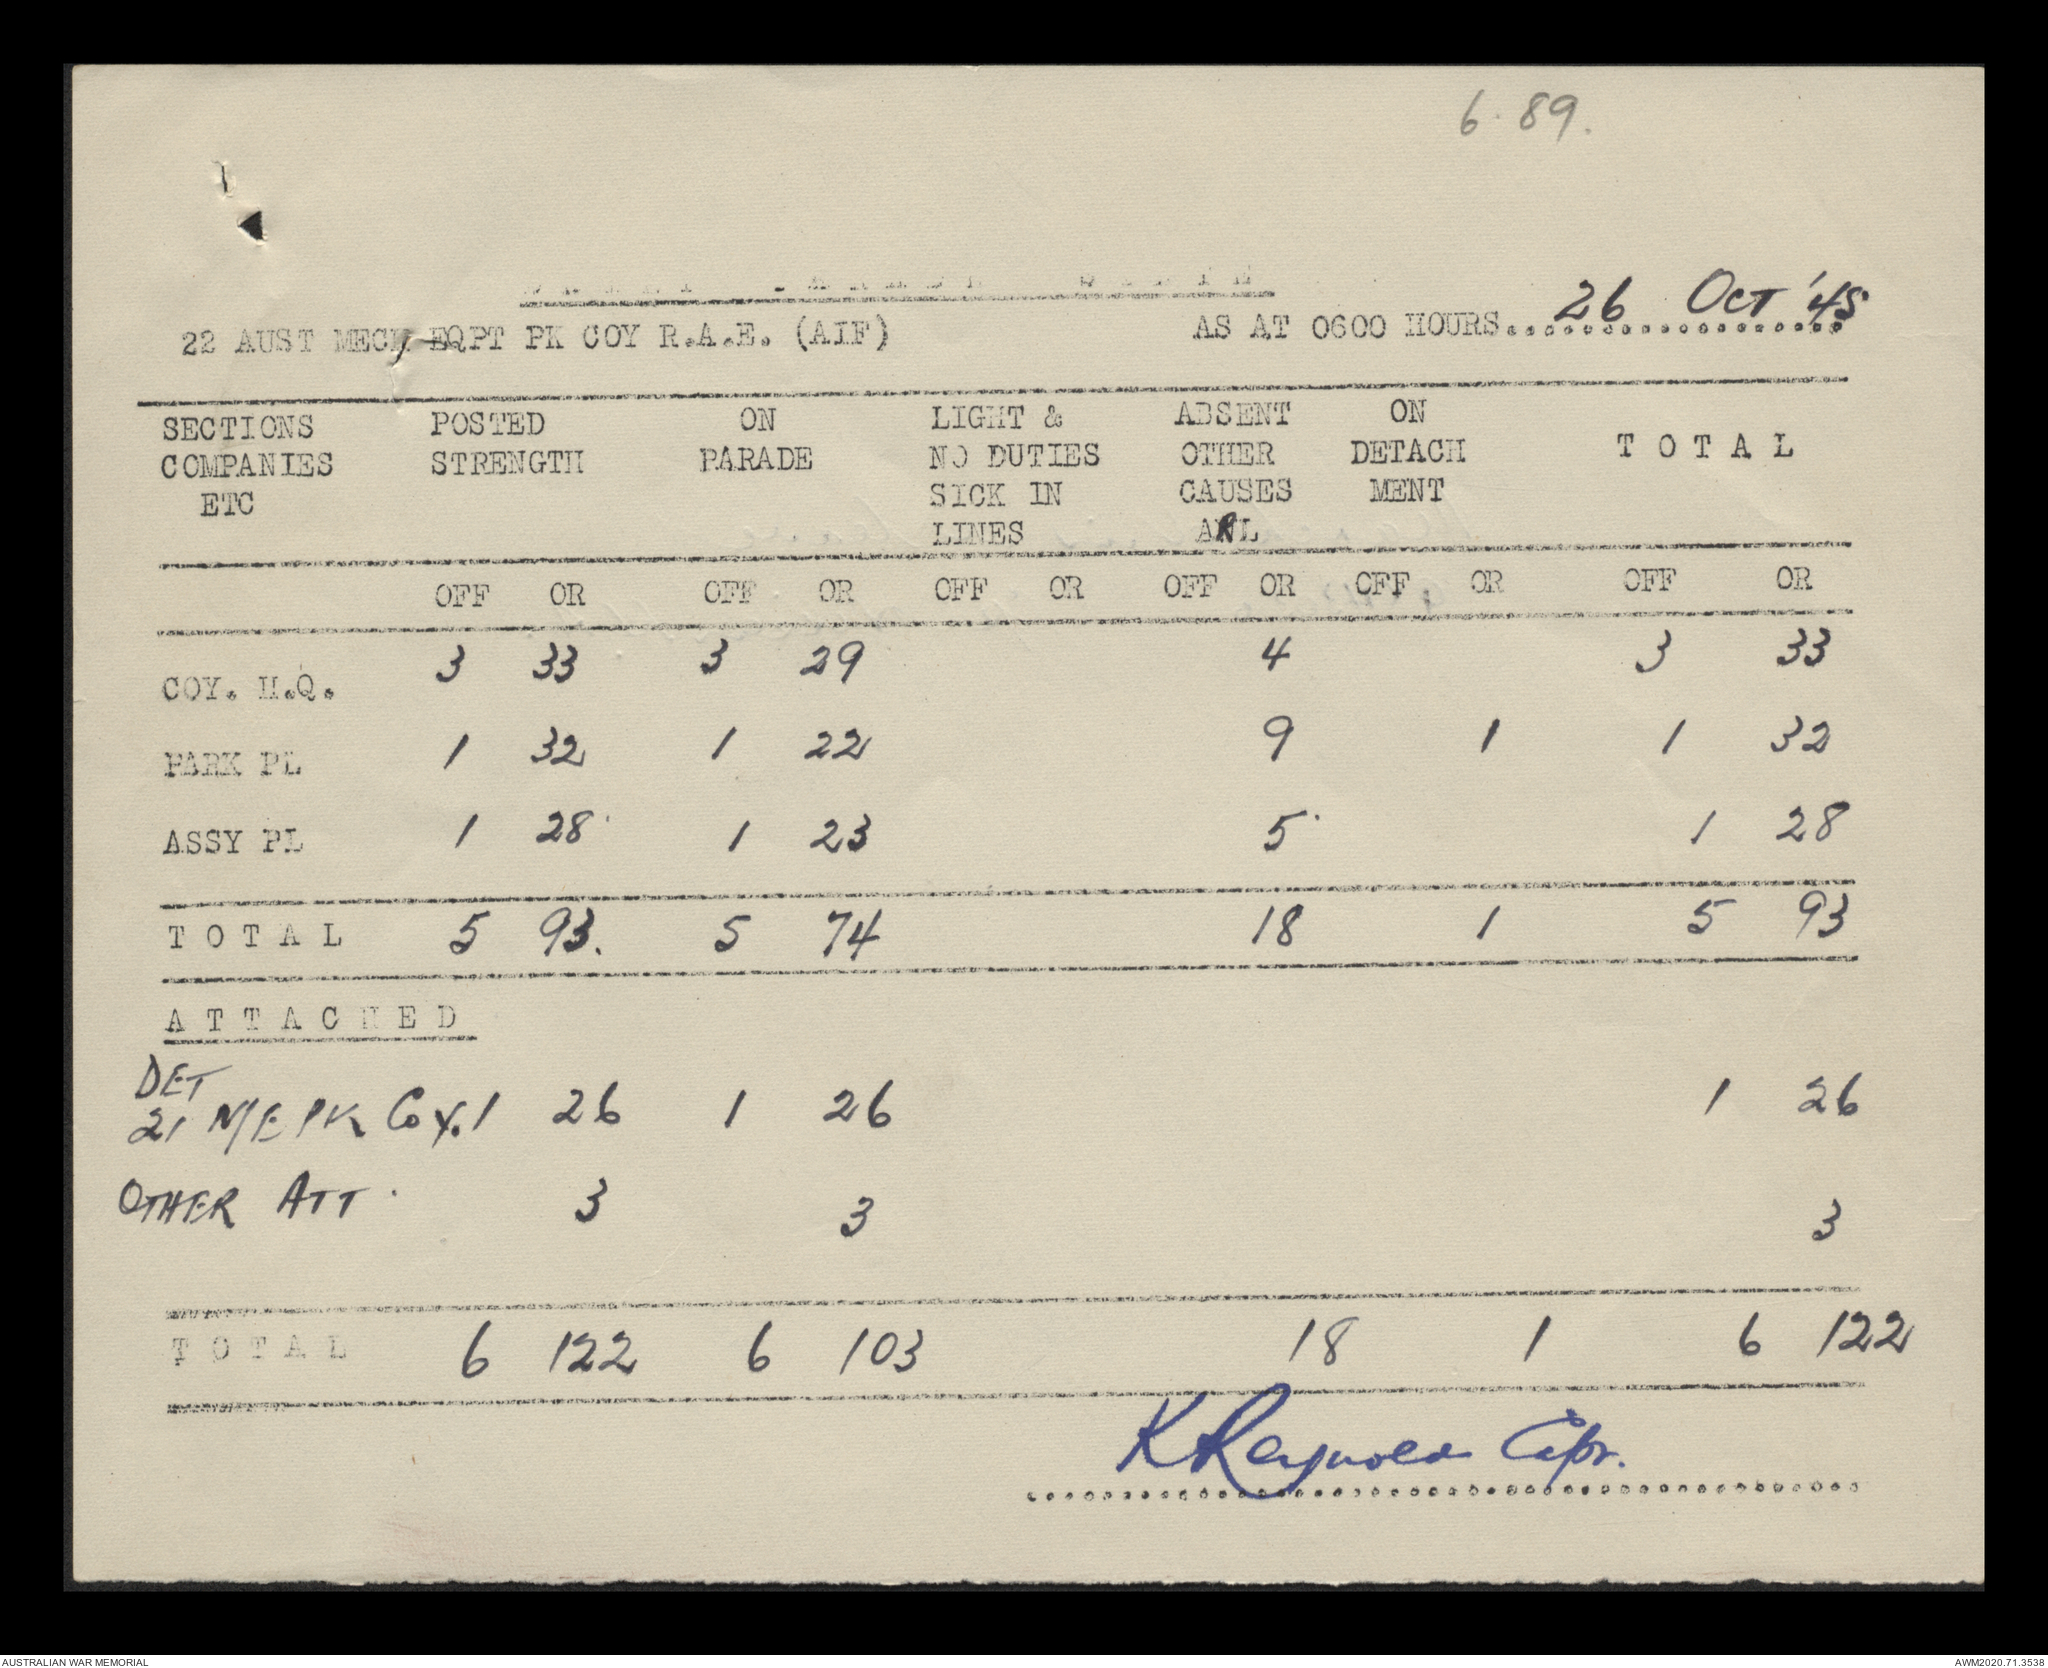 6.89.
22 AUST MECH EQPT PK COY R.A.E. (AIF) AS AT 0600 HOURS 26 OCT '45
SECTIONS COMPANIES ETC POSTED STRENGTH ON PARADE LIGHT & NO DUTIES SICK IN LINES ABSENT OTHER CAUSES ON DETACH MENT T O T A L
OFF OR OFF OR OFF OR OFF OR OFF OR OFF OR
COY. H.Q. 3 33 3 29 4 3 33
PARK PL 1 32 1 22 9 1 1 32
ASSY PL 1 28 1 23 5 1 28
T O T A L 5 93. 5 74 18 1 5 93
A T T A C H E D
DET
21 M/E PK Coy. 1 26 1 26 1 26
OTHER ATT. 3 3 3
T O T A L 6 122 6 103 18 1 6 122
K Reynolds Capt.
AUSTRALIAN WAR MEMORIAL AWM2020.71.3538